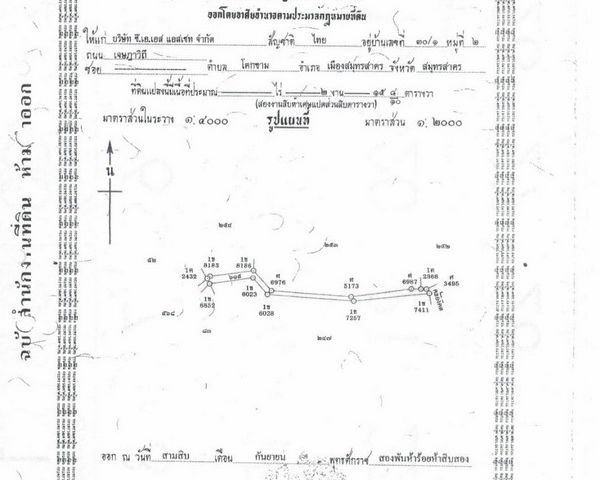 ออกโดยอาศัยอำนาจตามประมวลกฎหมายที่ดิน
ให้แก่ บริษัท ซี.เอ.เอส แอสเซท จำกัด สัญชาติ ไทย อยู่บ้านเลขที่ ๓๐/๑ หมู่ที่ ๒
ถนน เจษฎาวิถี
ซอย ตำบล โคกขาม อำเภอ เมืองสมุทรสาคร จังหวัด สมุทรสาคร
ที่ดินแปลงนี้มีเนื้อที่ประมาณ ไร่ ๒ งาน ๑๕ ๘/๑๐ ตารางวา
(สองงานสิบห้าเศษแปดส่วนสิบตารางวา)
มาตราส่วนในระวาง ๑:๔๐๐๐ รูปแผนที่ มาตราส่วน ๑:๒๐๐๐
น
๒๕๔
๒๕๓
๒๙๒
๕๒
โด 2432
1ช 8183
1ช 8186
ศ 6976
ศ 5173
ศ 6987
โด 2368
ศ 3495
1ช 6852
1ช 8023
1ช 6028
1ช 7257
1ช 7411
คลองโคก
๘๓
๒๔๗
ออก ณ วันที่ สามสิบ เดือน กันยายน พุทธศักราช สองพันห้าร้อยห้าสิบสอง
ฉบับสำนักงานที่ดิน ห้ามนำออก